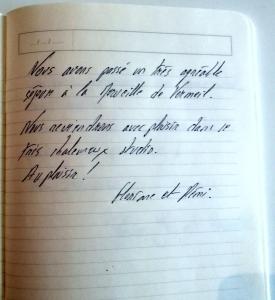 Nous avons passé un très agréable
séjour à la de Vermeil.
Nous reviendrons avec plaisir dans ce
très chaleureux studio.
Au plaisir !
et Rémi.